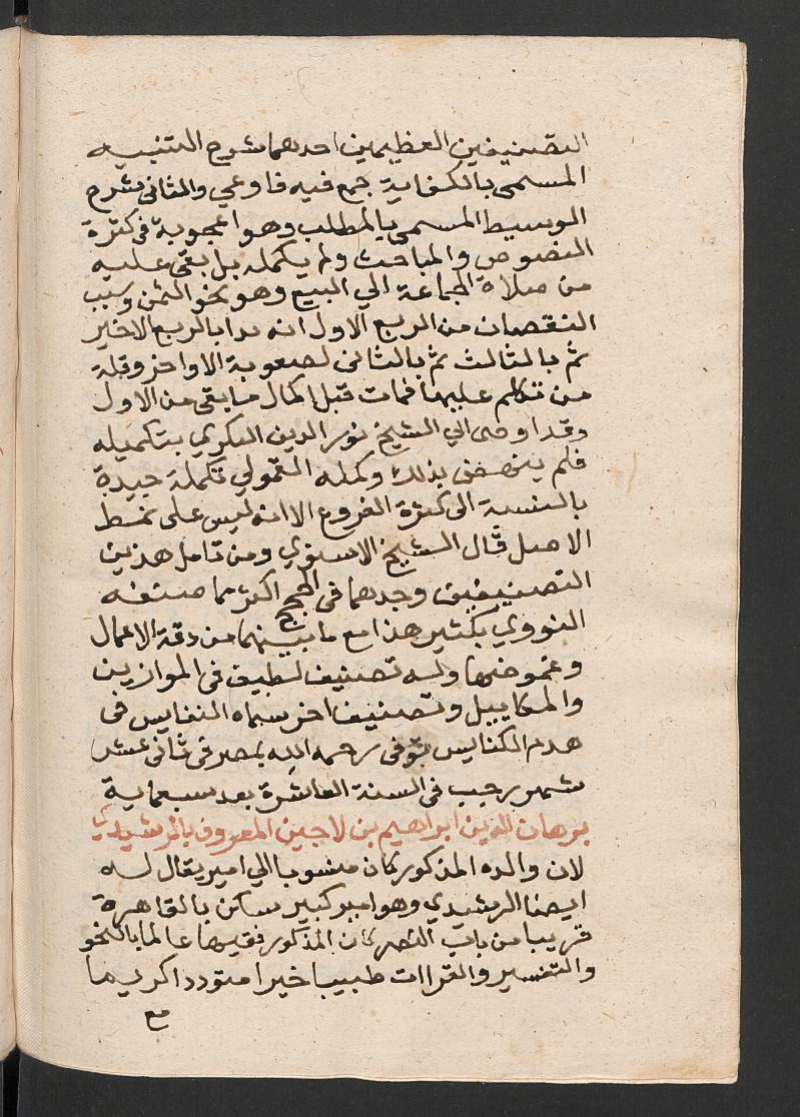 التصنيفين العظيمين احدهما شرح التنبيه
المسمى بالكفاية جمع فيه فاوعي والثانى شرح
الوسيط المسمى بالمطلب وهو اعجوبة فى كثرة
النصوص والمباحث ولم يكمله بل بقى عليه
من صلاة الجماعة الي البيع وهو نحو الثمن وسبب
النقصان من الربع الاول انه بدا بالربع الاخير
ثم بالثالث ثم بالثانى لصعوبة الاواخر وقلة
من تكلم عليها فمات قبل اكمال ما بقى من الاول
وقد اوصى الي الشيخ نور الدين البكري بتكميله
فلم ينهض بذلك وكمله القمولي تكملة جيدة
بالنسبة الى كثرة الفروع الا انه ليس على نمط
الاصل قال الشيخ الاسنوي ومن تامل هذين
التصنيفين وجدهما فى الحجم اكثر مما صنفه
النووي بكثير هذا مع ما بينهما من دقة الاعمال
وغموضها وله تصنيف لطيف فى الموازين
والمكاييل وتصنيف اخر سماه النفايس فى
هدم الكنايس توفى رحمه الله بمصر فى ثانى عشر
شهر رجب فى السنة العاشرة بعد سبعماية
برهان الدين ابراهيم بن لاجين المعروف بالرشيدي
لان والده المذكور كان منسوبا الي امير يقال له
ايضا الرشيدي وهو امير كبير ساكن بالقاهرة
قريبا من باب النصر كان المذكور فقيها عالما بالنحو
والتفسير والقراات طبيبا خيرا متوددا كريما
مع